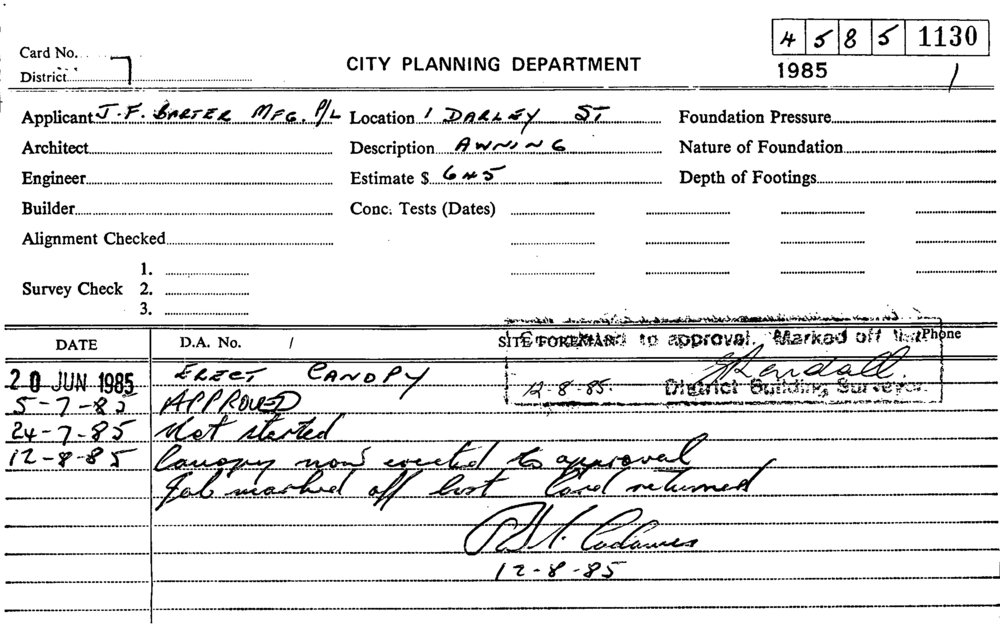 4 5 8 5 1130
Card No.
CITY PLANNING DEPARTMENT
1985 /
District 7
Applicant J.F. BARTER MFG. P/L Location 1 DARLEY ST Foundation Pressure
Architect Description AWNING Nature of Foundation
Engineer Estimate $ 645 Depth of Footings
Builder Conc. Tests (Dates)
Alignment Checked
1.
Survey Check 2.
3.
DATE D.A. No. / SITE FOREMAN to approval. Marked off list Phone
20 JUN 1985 ERECT CANOPY 12-8-85 District Building Surveyor.
5-7-85 APPROVED
24-7-85 Not started
12-8-85 Canopy now erected to approval
Job marked off list Card returned
12-8-85